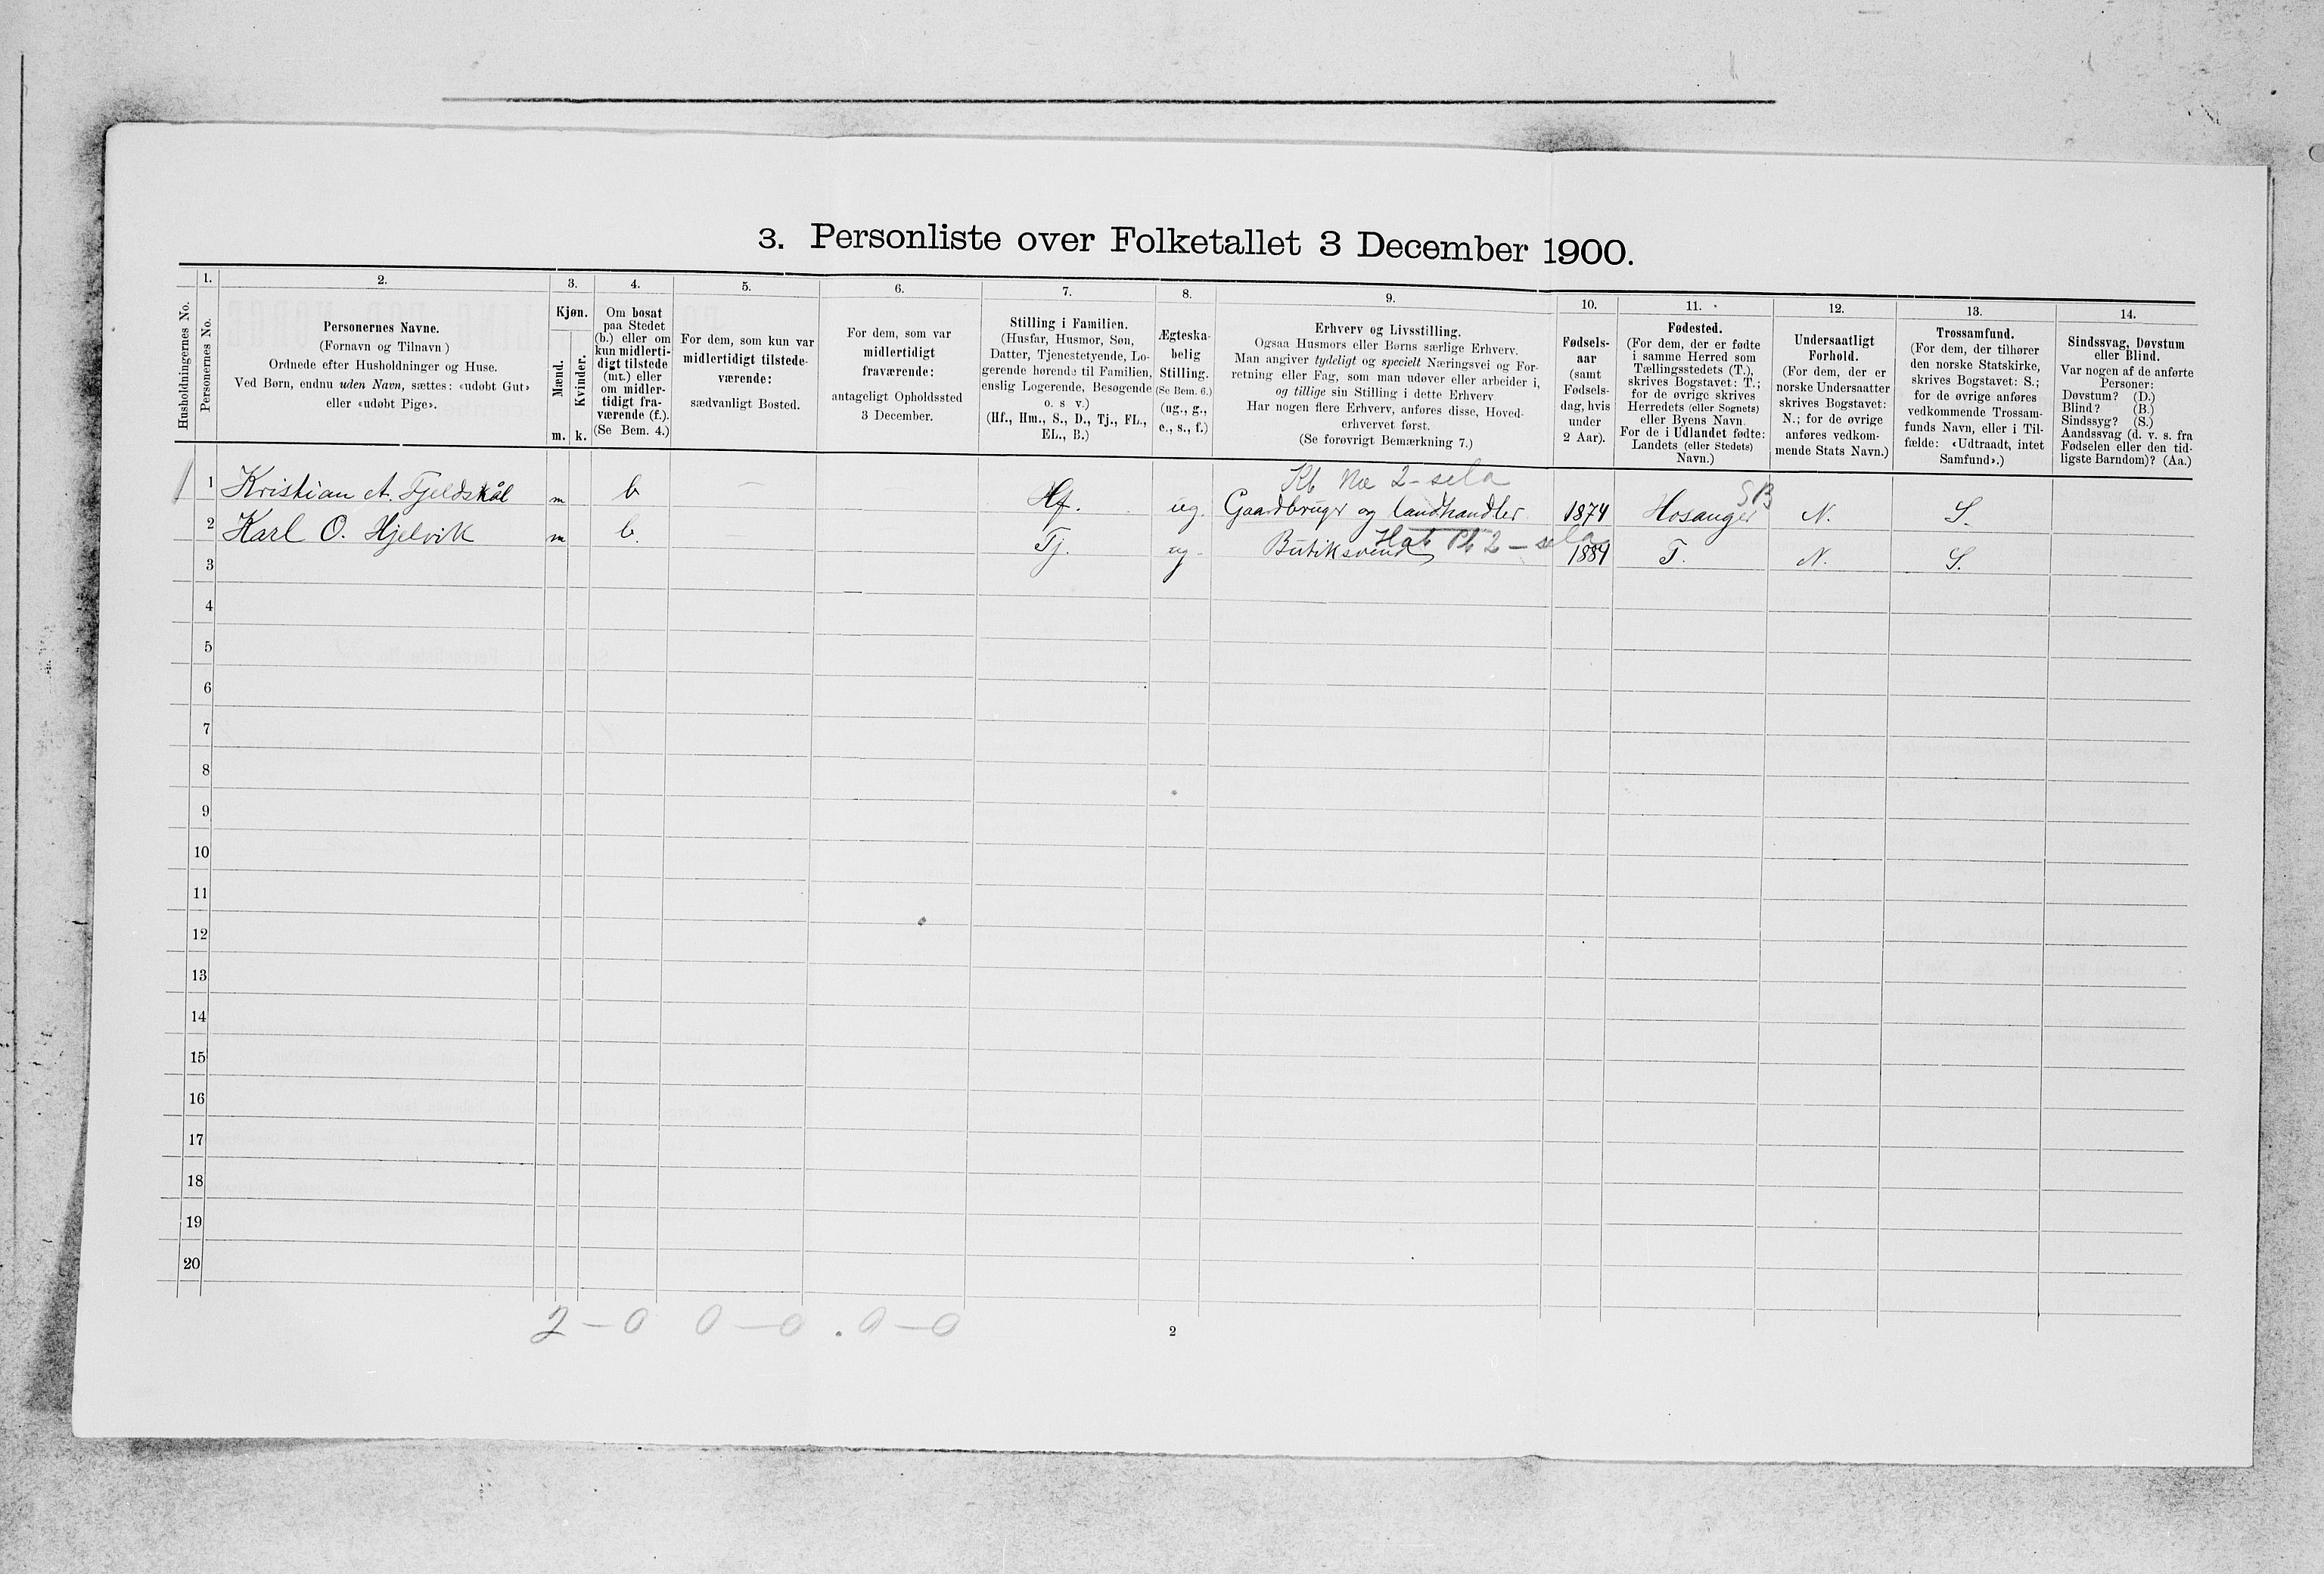 3. Personliste over Folketallet 3 December 1900.
1. 2. 3. 4. 5. 6. 7. 8. 9. 10. 11. 12. 13. 14.
Husholdningernes No.
Personernes No.
Personernes Navne.
(Fornavn og Tilnavn)
Ordnede efter Husholdninger og Huse.
Ved Børn, endnu uden Navn, sættes: «udøbt Gut»
eller «udøbt Pige».
Kjøn.
Mænd.
Kvinder.
m. k.
Om bosat
paa Stedet
(b.) eller om
kun midlerti-
digt tilstede
(mt.) eller
om midler-
tidigt fra-
værende (f.).
(Se Bem. 4.)
For dem, som kun var
midlertidigt tilstede-
værende:
sædvanligt Bosted.
For dem, som var
midlertidigt
fraværende:
antageligt Opholdssted
3 December.
Stilling i Familien.
(Husfar, Husmor, Søn,
Datter, Tjenestetyende, Lo-
gerende hørende til Familien,
enslig Logerende, Besøgende
o. s v.)
(Hf., Hm., S., D., Tj., FL.,
EL., B.)
Ægteska-
belig
Stilling.
(Se Bem. 6.)
(ug., g.,
e., s., f.)
Erhverv og Livsstilling.
Ogsaa Husmors eller Børns særlige Erhverv.
Man angiver tydeligt og specielt Næringsvei og For-
retning eller Fag, som man udøver eller arbeider i,
og tillige sin Stilling i dette Erhverv
Har nogen flere Erhverv, anføres disse, Hoved-
erhvervet først.
(Se forøvrigt Bemærkning 7.)
Fødsels-
aar
(samt
Fødsels-
dag, hvis
under
2 Aar).
Fødested.
(For dem, der er fødte
i samme Herred som
Tællingsstedets (T.),
skrives Bogstavet: T.;
for de øvrige skrives
Herredets (eller Sognets)
eller Byens Navn.
For de i Udlandet fødte:
Landets (eller Stedets)
Navn.)
Undersaatligt
Forhold.
(For dem, der er
norske Undersaatter
skrives Bogstavet:
N.; for de øvrige
anføres vedkom-
mende Stats Navn.)
Trossamfund.
(For dem, der tilhører
den norske Statskirke,
skrives Bogstavet: S.;
for de øvrige anføres
vedkommende Trossam-
funds Navn, eller i Til-
fælde: «Udtraadt, intet
Samfund».)
Sindssvag, Døvstum
eller Blind.
Var nogen af de anførte
Personer:
Døvstum? (D.)
Blind? (B.)
Sindssyg? (S.)
Aandssvag (d. v. s. fra
Fødselen eller den tid-
ligste Barndom)? (Aa.)
2-sela
1 1 Kristian A. Fjeldskål m b — Hf. ug. Gaardbruger og landhandler 1874 Hosanger SB N. S.
2 Karl O. Hjelvik m b. Tj. ug. Butiksvend 2-sela 1884 T. N. S.
3
4
5
6
7
8
9
10
11
12
13
14
15
16
17
18
19
20
2-0 0-0 . 0-0
2